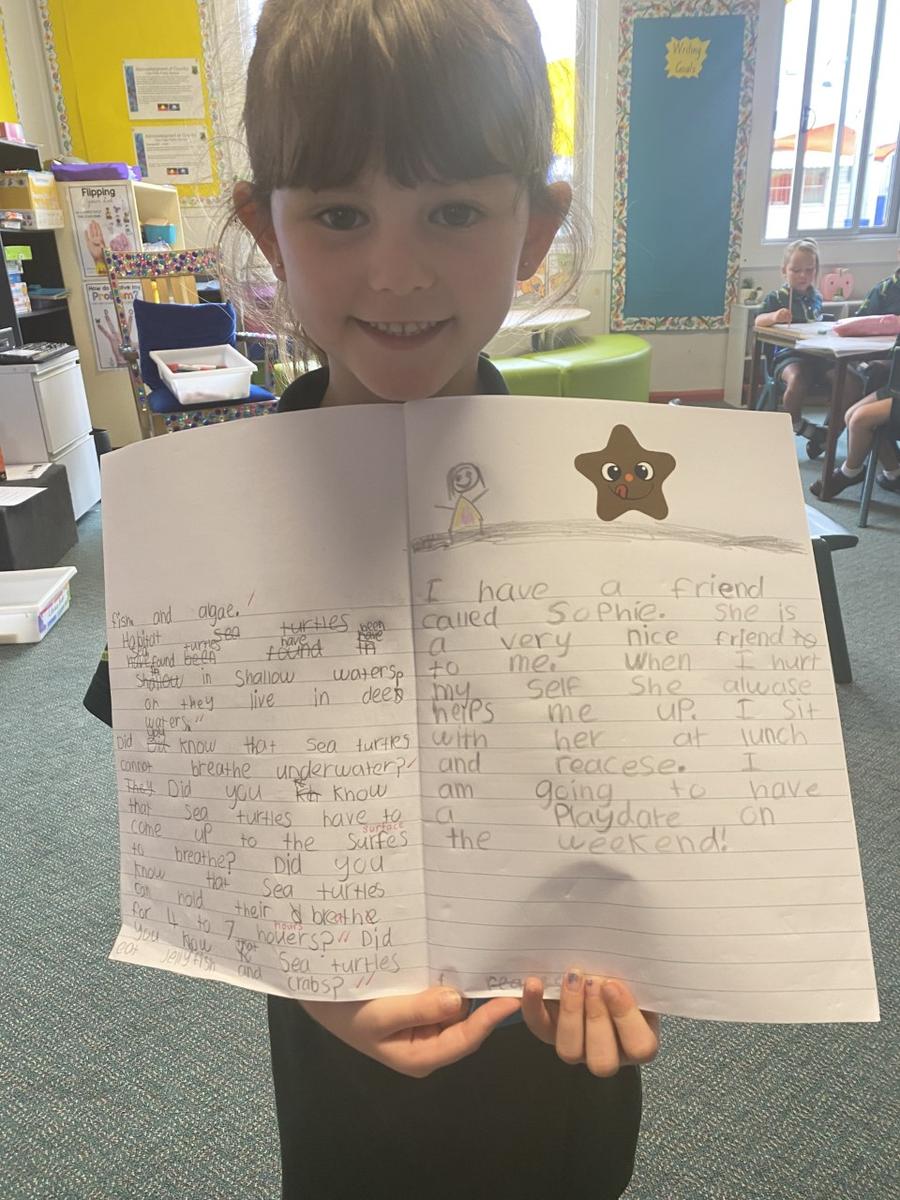 Acknowledgment of Country
Acknowledgment of Country
Writing
Goals
Flipping
How do I solve my
Problem?
fish and algae.
Habitat Sea turtles been
Sea turtles have have
have found been found in
in
Shallow in Shallow waters,
or they live in deep
waters.
you
Did Did know that Sea turtles
cannot breathe underwater?
They Did you Kn know
that sea turtles have to
surface
come up to the surfes
to breathe? Did you
know that Sea turtles
can hold their breathe
hours
for 4 to 7 houers? Did
that
you know Sea turtles
eat Jellyfish and
crabs?
I have a friend
called Sophie. She is
a very nice friend to
to me. When I hurt
my self She alwase
helps me up. I Sit
with her at lunch
and reacese. I
am going to have
a Playdate on
the weekend!